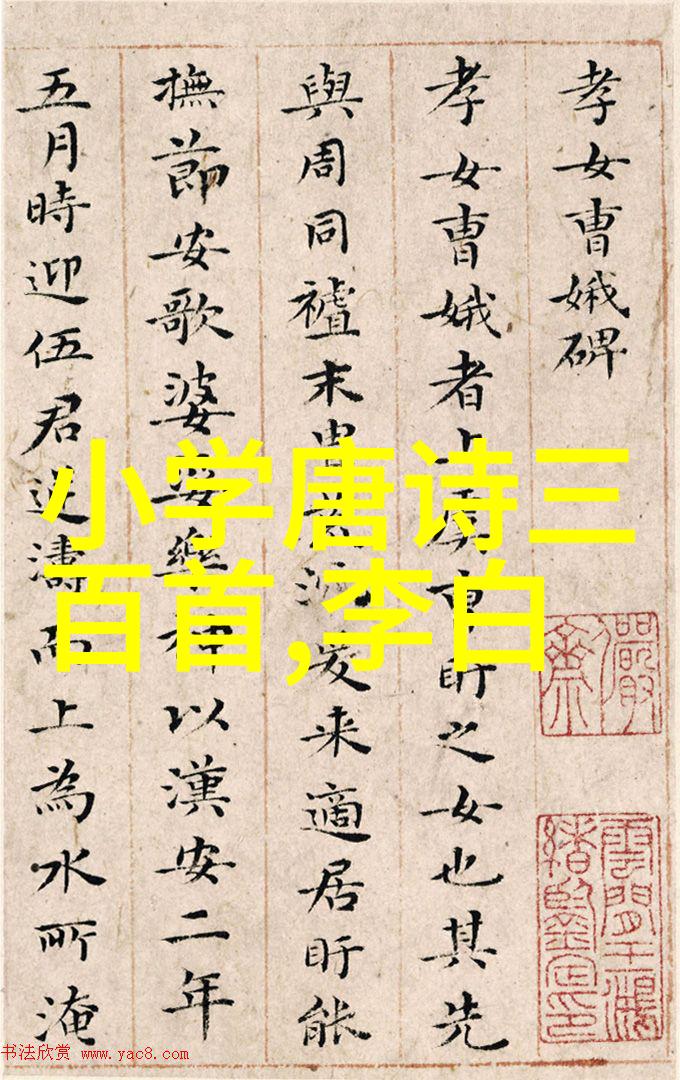 孝女曹娥碑
孝女曹娥者上虞曹盱之女也其先
與周同禮末胄荒沉爰来適居盱能
撫節安歌婆娑樂神以漢安二年
五月時迎伍君逆濤而上為水所淹
小学唐诗三
百首,李白
儼齋
雲間王鴻
緒鑒定印
书法欣赏 www.yac8.com